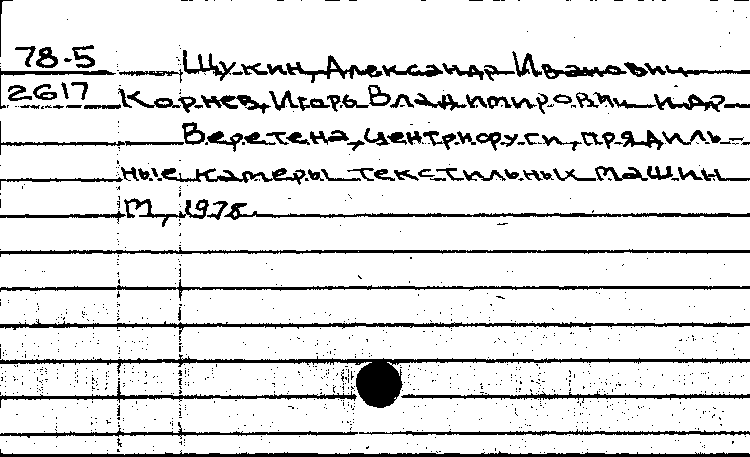 78-5 Щукин, Александр Иванович
2617 Корнев, Игорь Владимирович и др
Веретена, центрифуги, прядиль-
ные камеры текстильных машин
М, 1978.